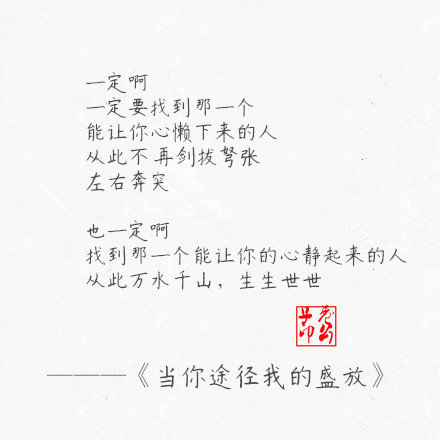 一定啊
一定要找到那一个
能让你心懒下来的人
从此不再剑拔弩张
左右奔突
也一定啊
找到那一个能让你的心静起来的人
从此万水千山，生生世世
————《当你途径我的盛放》